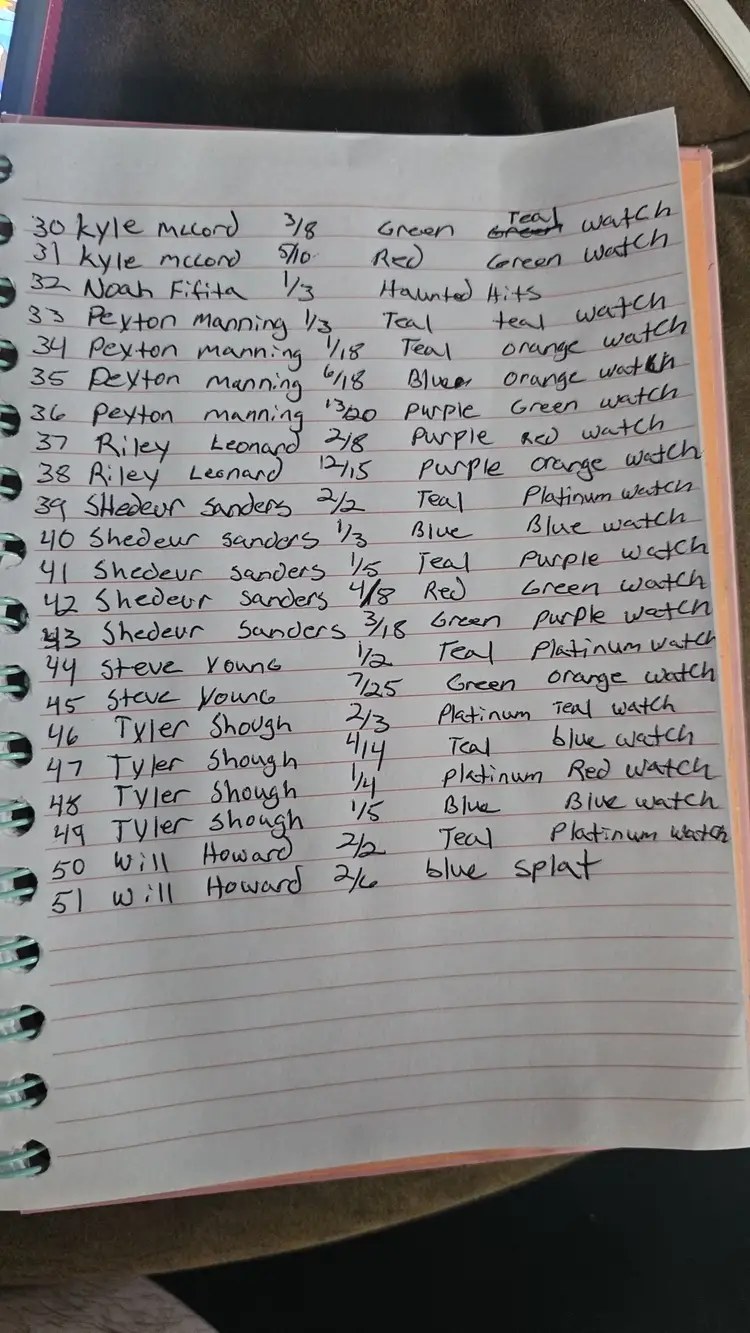 30 Kyle mccord 3/8 Green Teal watch
31 Kyle mccord 5/10 Red Green watch
32 Noah Fifita 1/3 Haunted Hits
33 Peyton manning 1/3 Teal teal watch
34 Peyton manning 1/18 Teal orange watch
35 Peyton manning 6/18 Blue orange watch
36 Peyton manning 13/20 Purple Green watch
37 Riley Leonard 2/8 Purple Red watch
38 Riley Leonard 12/15 Purple orange watch
39 SHedeur Sanders 2/2 Teal Platinum watch
40 Shedeur sanders 1/3 Blue Blue watch
41 Shedeur sanders 1/5 Teal Purple watch
42 Shedeur Sanders 4/8 Red Green watch
43 Shedeur Sanders 3/18 Green Purple watch
44 Steve Young 1/2 Teal Platinum watch
45 Steve Young 7/25 Green orange watch
46 Tyler Shough 2/3 Platinum Teal watch
47 Tyler Shough 4/14 Teal blue watch
48 Tyler Shough 1/4 Platinum Red watch
49 Tyler Shough 1/5 Blue Blue watch
50 Will Howard 2/2 Teal Platinum watch
51 Will Howard 2/6 blue splat